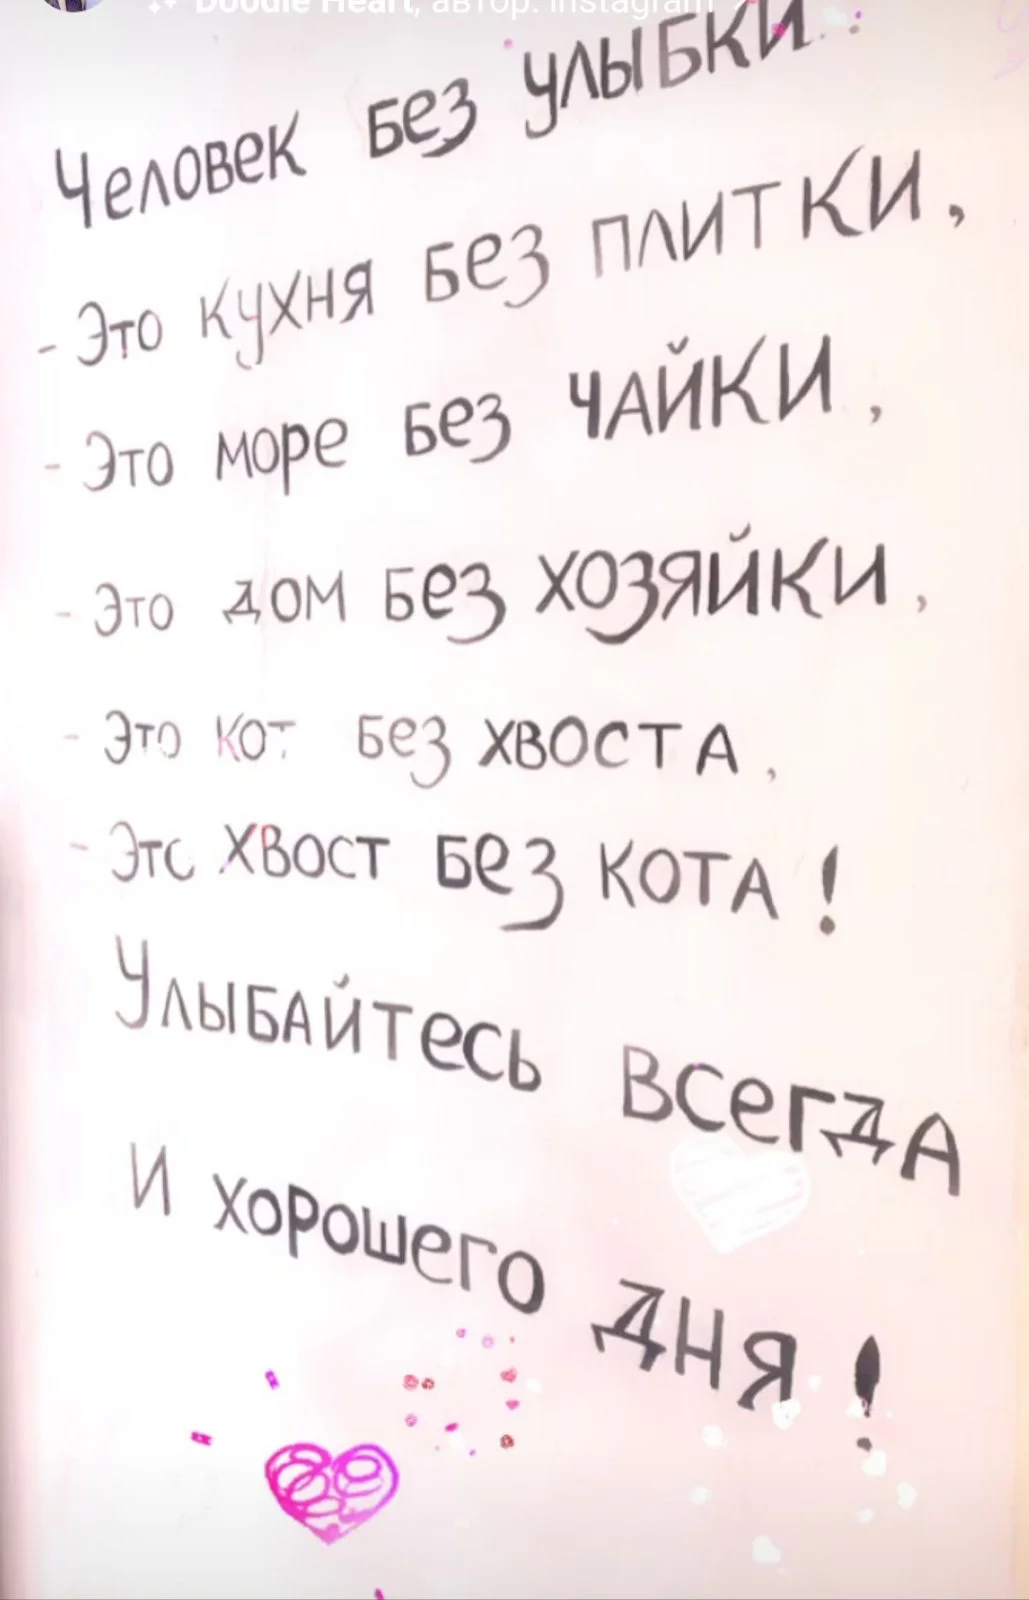 Doodle Heart, автор: Instagram
Человек без улыбки..
- Это кухня без плитки,
- Это море без чайки,
- Это дом без хозяйки,
- Это кот без хвоста,
- Это хвост без кота!
Улыбайтесь всегда
И хорошего дня!